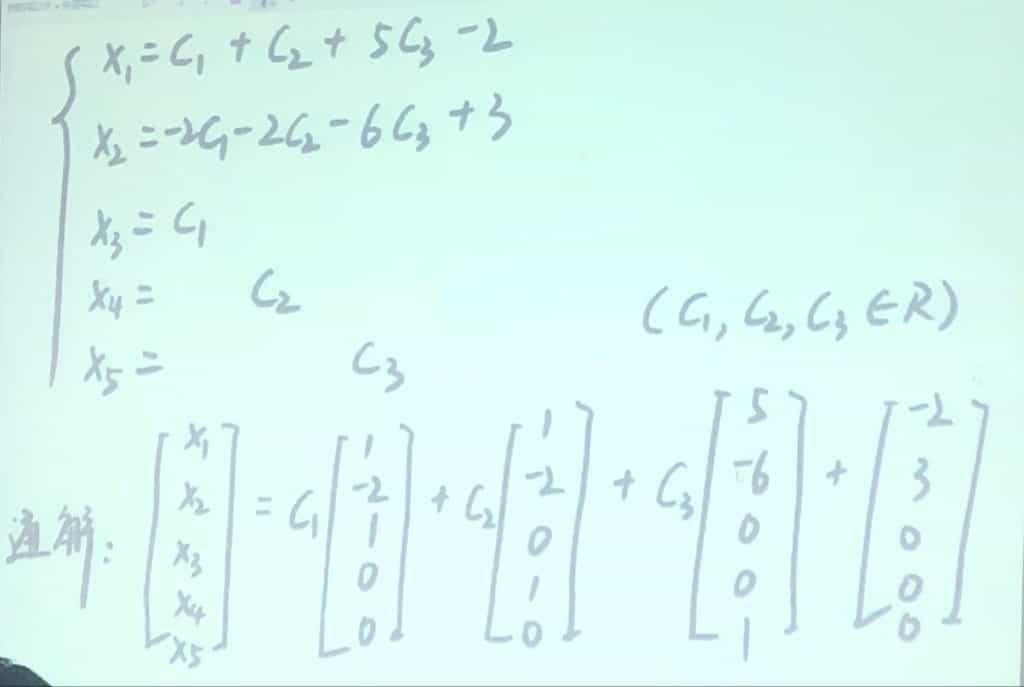 x₁ = C₁ + C₂ + 5C₃ - 2
x₂ = -2C₁ - 2C₂ - 6C₃ + 3
x₃ = C₁
x₄ = C₂
x₅ = C₃
(C₁, C₂, C₃ ∈ R)
通解: [x₁ x₂ x₃ x₄ x₅] = C₁ [1 -2 1 0 0] + C₂ [1 -2 0 1 0] + C₃ [5 -6 0 0 1] + [-2 3 0 0 0]